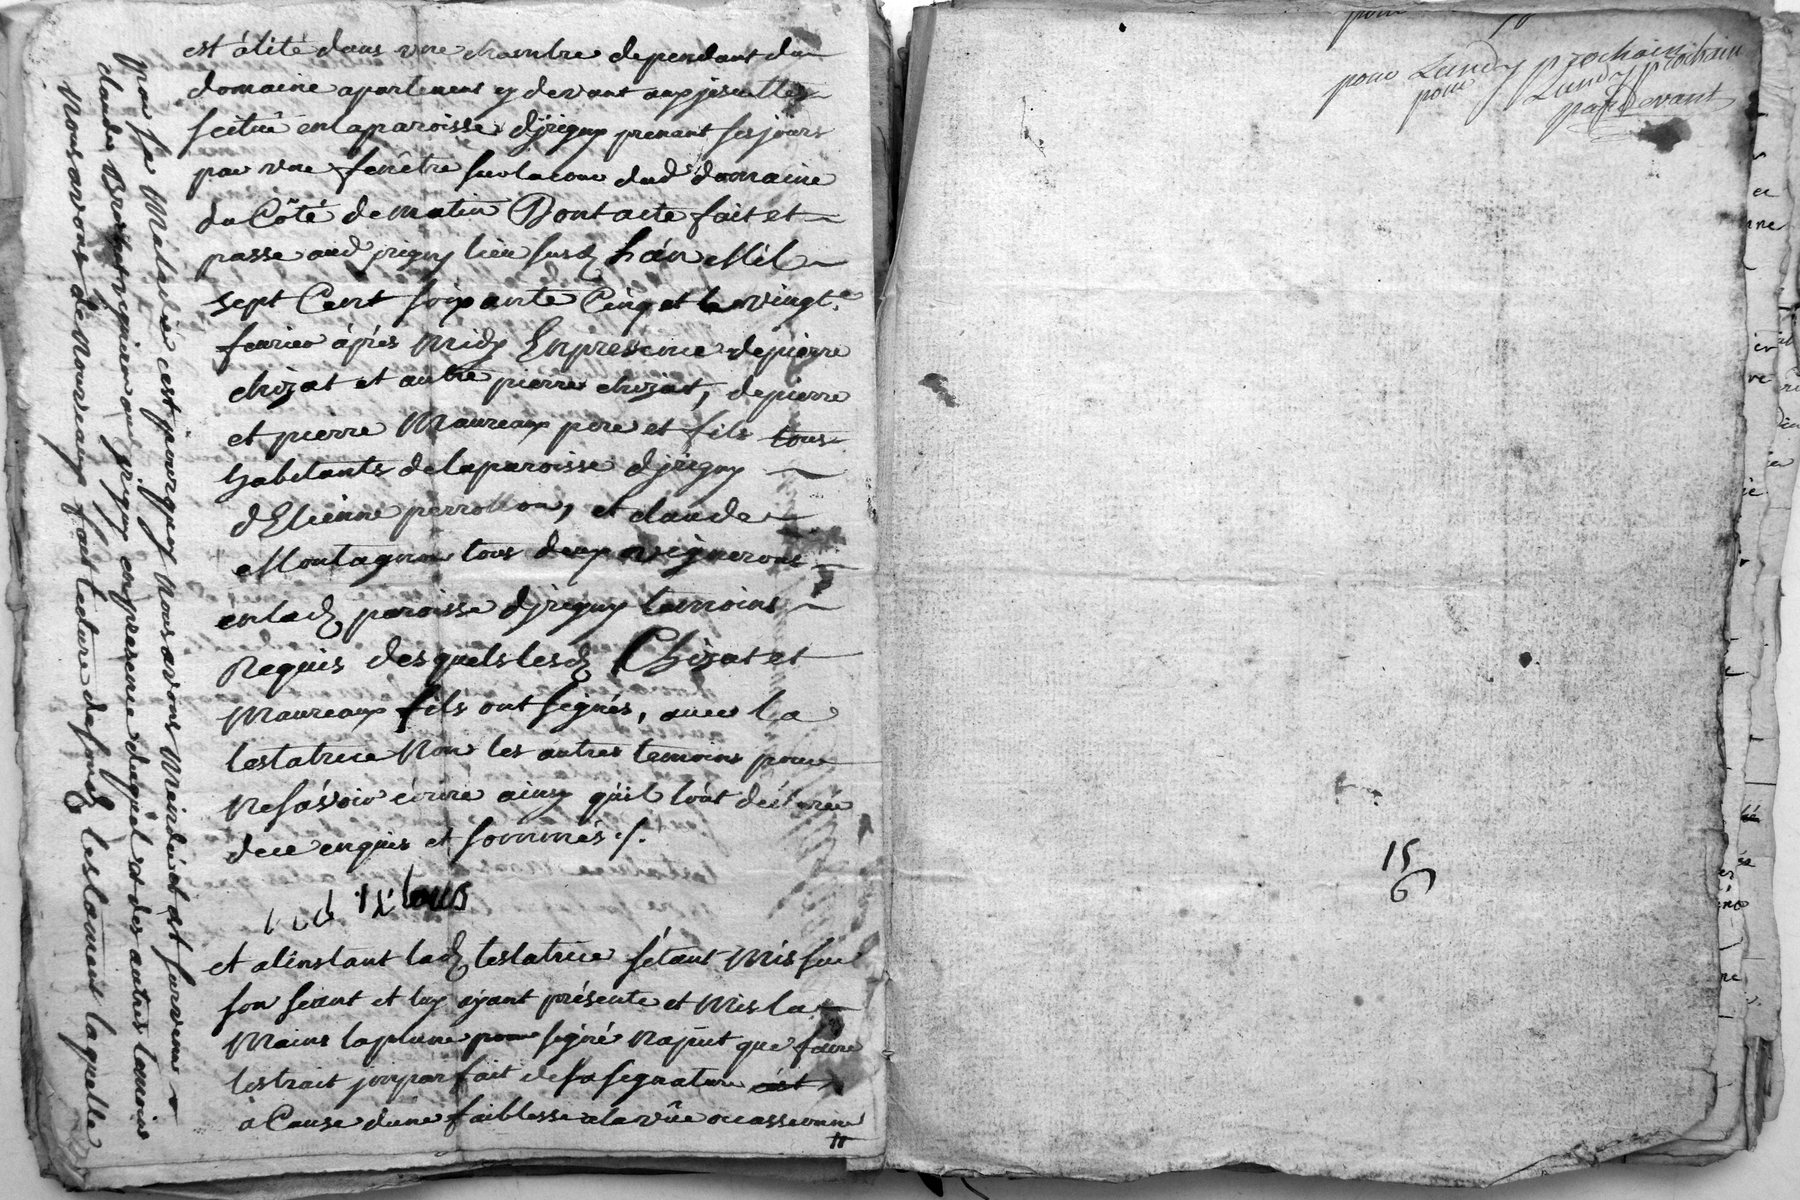 est álité dans vne chambre dependant du
domaine apartenent cy devant aux jesuittes
scitué en la paroisse d'jrigny prenant ses jours
par vne fenêtre sur la cour dud domaine
du Côté de matin Dont acte fait et
passe aud jrigny lieu susd l'an Mil
sept Cent soixante Cinq et le vingt
fevrier aprés Midy En presence de pierre
chizat et autre pierre chizat, de pierre
et pierre Maureaux pere et fils tous
habitants de la paroisse d'jrigny
d'Etienne perrollon, et claude
Montagnon tous deux vignerons
en lad paroisse d'jrigny temoins
Requis desquels lesd Chizat et
Maureaux fils ont signés, avec la
testatrice Non les autres temoins pour
Ne sávoir écrire ainsy qu'il l'ont déclarée
de ce enquis et sommés /.
et a l'instant lad testatrice s'étant Mis sur
son séant et luy ayant présenté et Mis la
Mains la plume pour signé N'a put que faire
les trait jmparfait de sa signature
a Cause d'une faiblesse a la vûe occassionné
par sa Maladie c'est pourquoy nous avons Mandé et fait survenir
claude Brochet vigneron aud jrigny en presence duquel et des autres temoins
Nous avons de Nouveaux fait lecture de sond testament laquelle
pour
pour Lundy prochain
pour Lundy prochain
pardevant
15
6